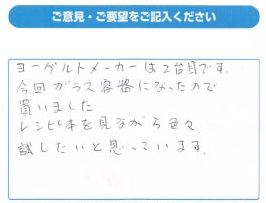 ご意見・ご要望をご記入ください
ヨーグルトメーカーは2台目です.
今回ガラス容器になったので
買いました
レシピ本を見ながら色々
試したいと思っています.